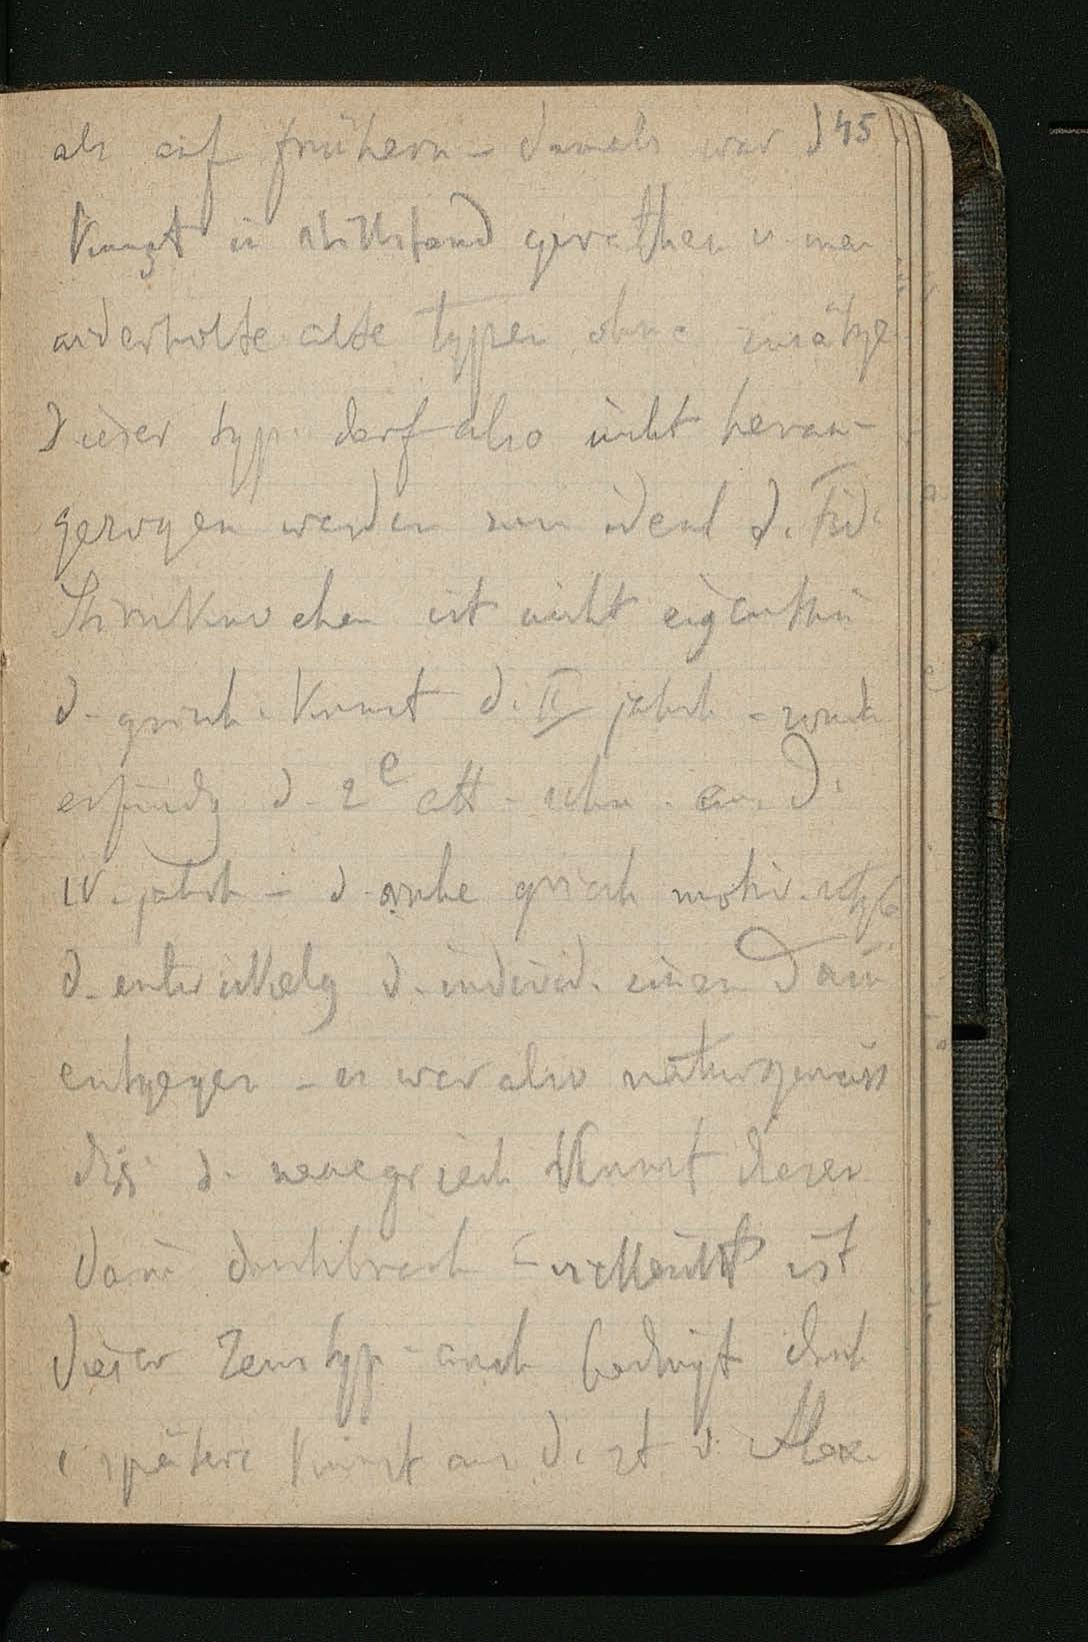 als auf frühern - damals war d 45
Kunst in stillstand gerathen u. man
widerholte alte typen ohne zusätze
Dieser typ. darf also nicht heran-
gezogen werden zum ideal d. Fid.
Stirnknochen ist nicht eigenthü
d. griech. Kunst d. II jahrh - sond
erfindg d. 2e att - schu. aus d.
IV. jahrh - d. ruhe griech motiv.
d. entwickelg d. individ. einen Dam
entgegen - es war also naturgemäss
d. neuegriech Kunst diesen
Dam durchbrach - vielleicht ist
Dieser Zeus typ - auch bedingt durch
spätere Kunst aus d. zt v. Alex.